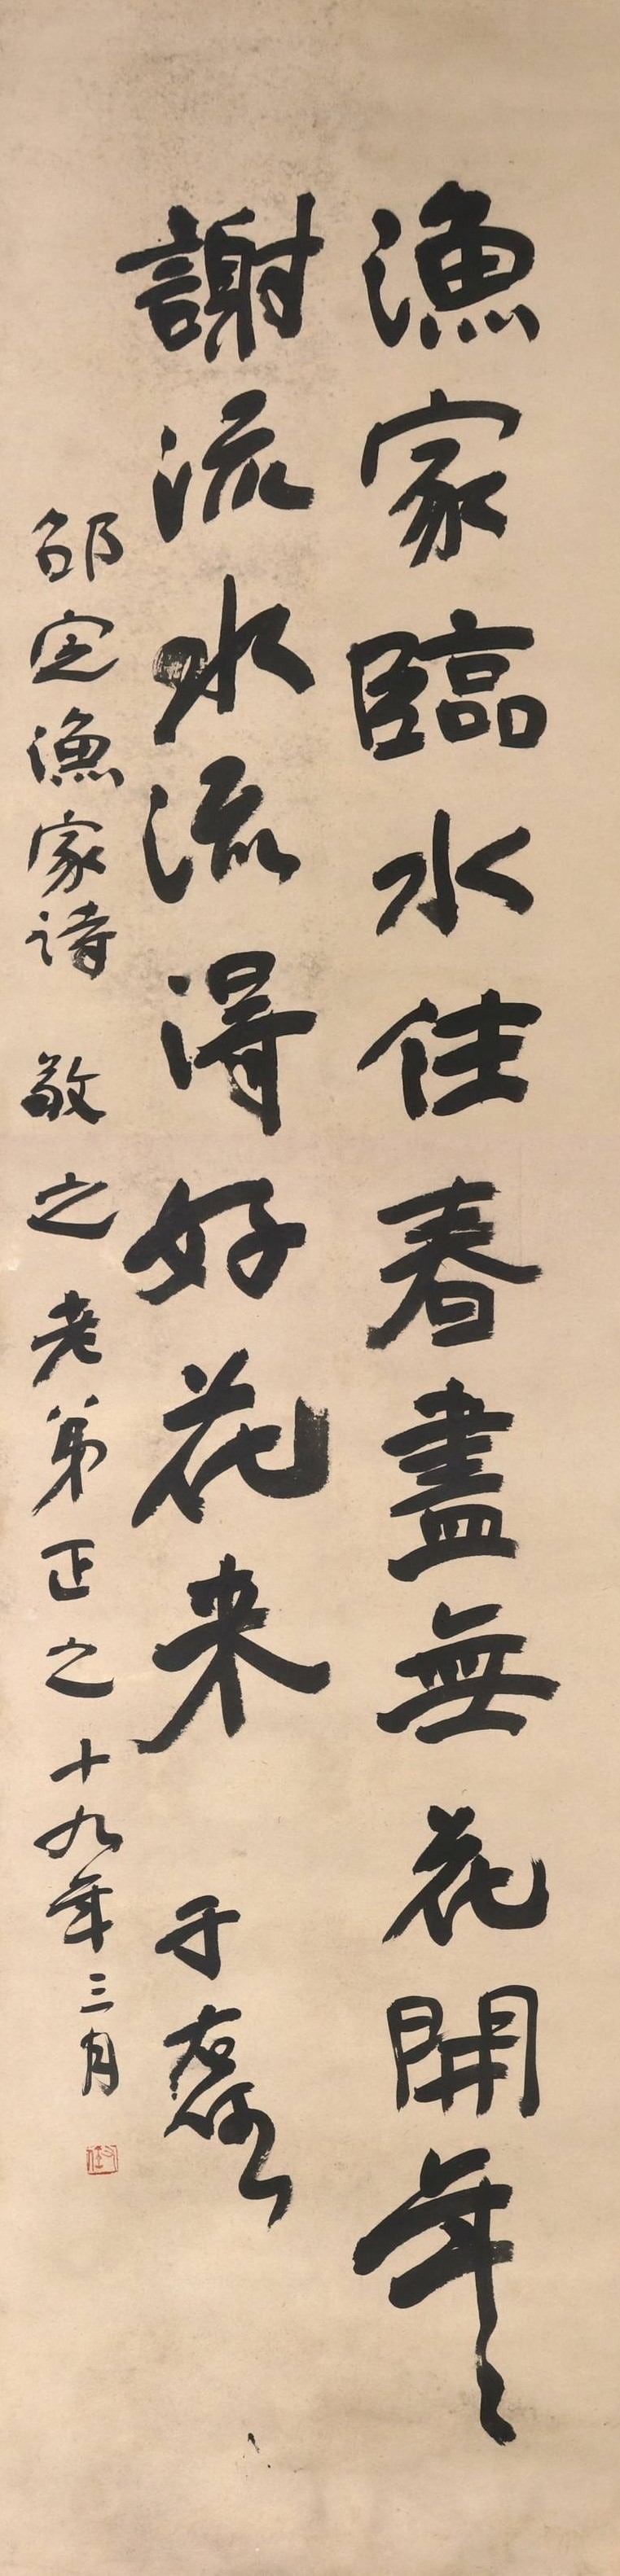 漁家臨水住春盡無花開年〻
謝流水流得好花来 于右任
邵定漁家诗 敬之老弟正之 十九年三月
右任